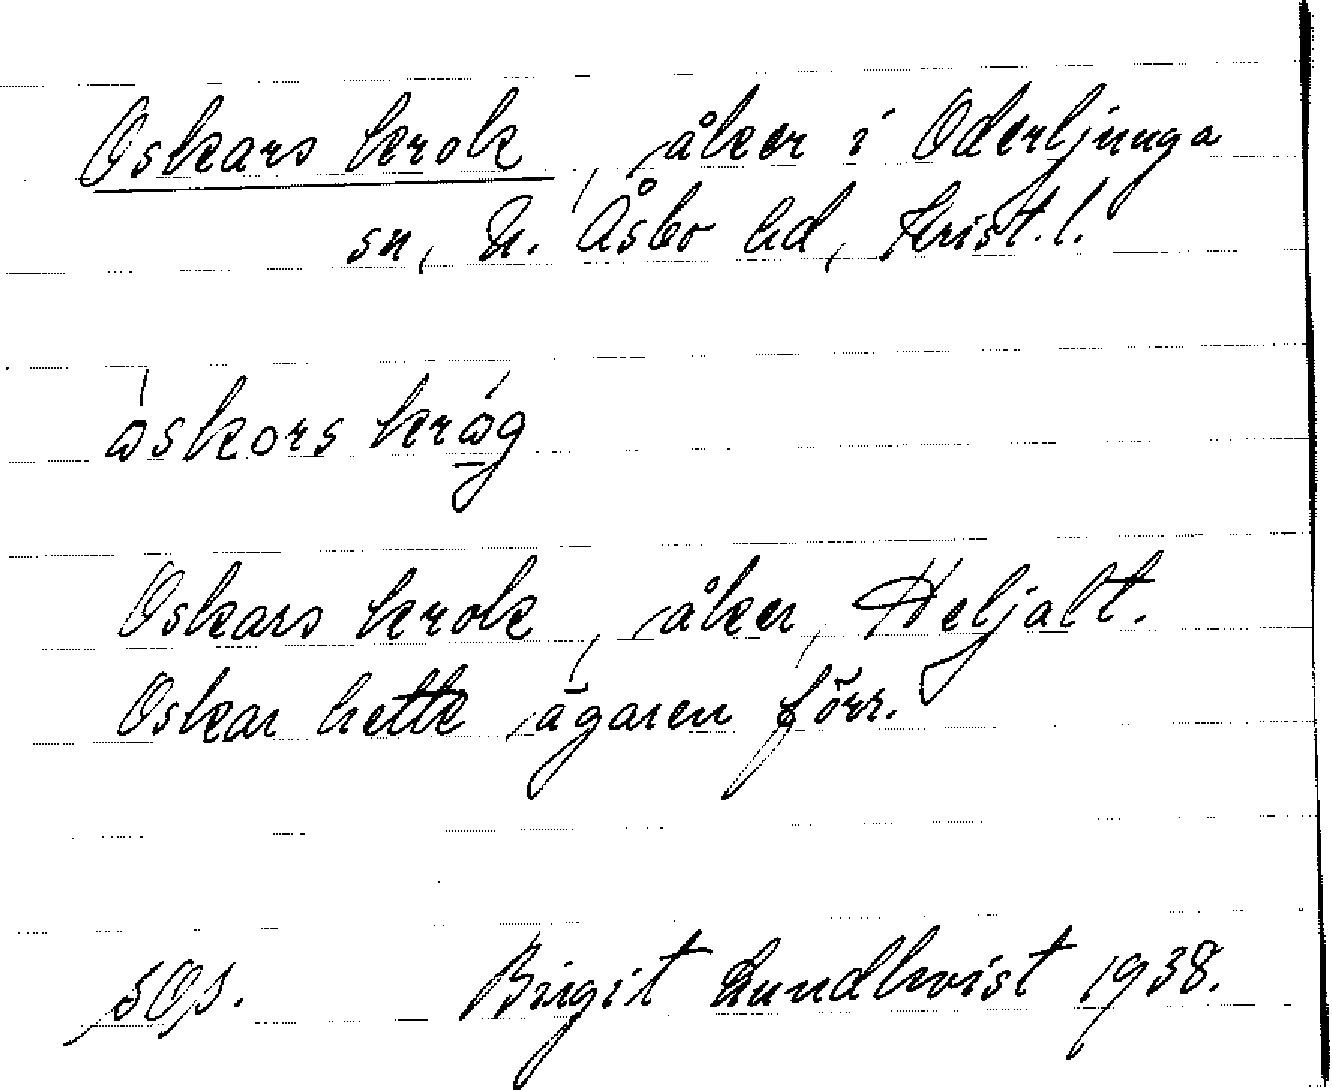 Oskars krok, åker i Oderljunga
sn, N. Åsbo hd, Krist. l.
åskors kråg
Oskars krok, åker, Heljalt.
Oskar hette ägaren förr.
SOS. Birgit Lundkvist 1938.